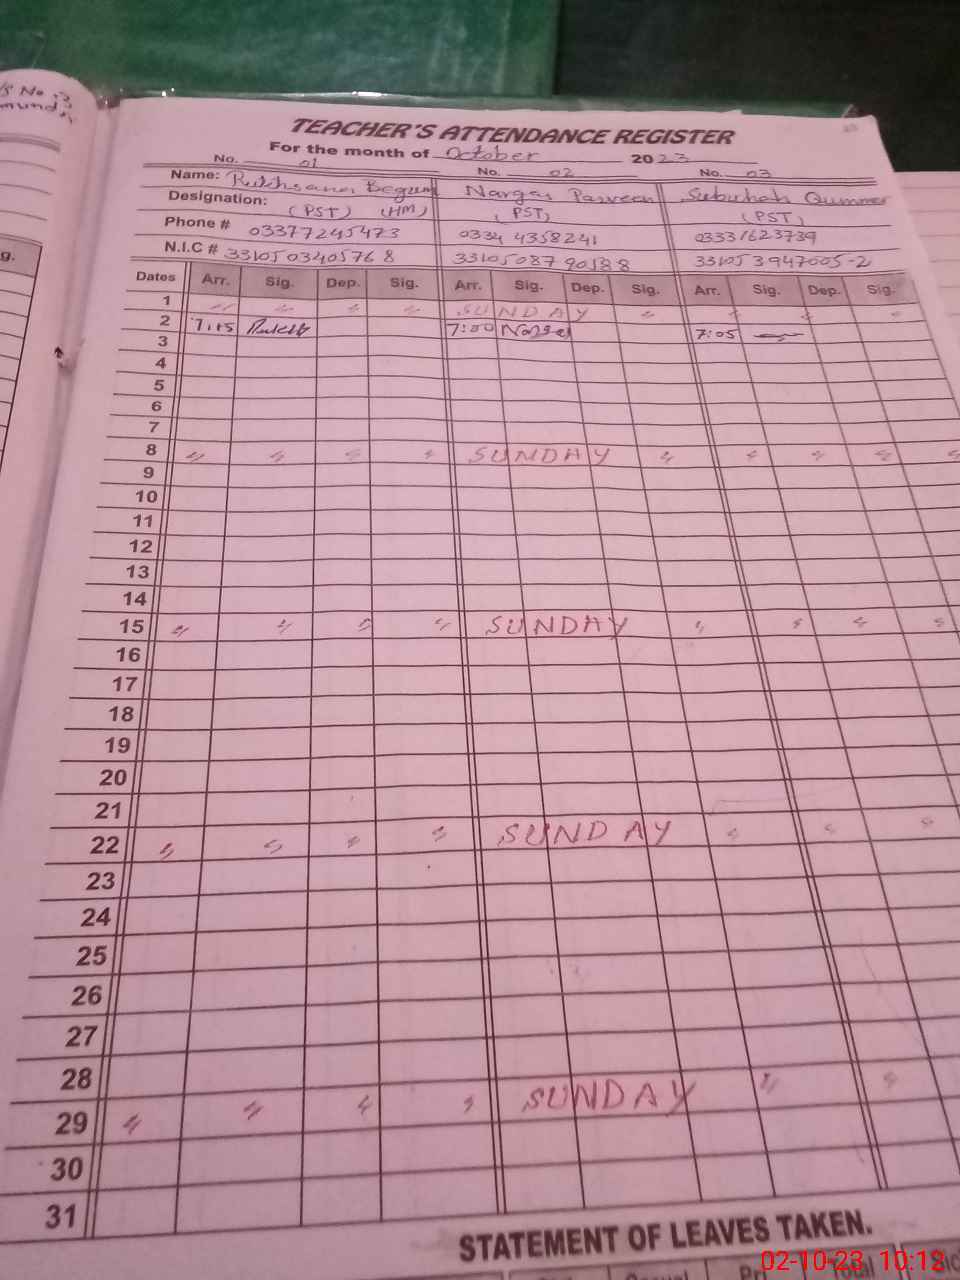 TEACHER'S ATTENDANCE REGISTER
For the month of October 2023
No. 01 No. 02 No. 03
Name: Rukhsana Begum Nargas Parveen Qummer
Designation: (PST) (HM) (PST) (PST)
Phone # 03377245473 0334 4358241 03331623739
N.I.C # 3310503405768 3310508790588 331053947005-2
Dates Arr. Sig. Dep. Sig. Arr. Sig. Dep. Sig. Arr. Sig. Dep. Sig.
1 〃 〃 〃 〃 SUNDAY 〃 〃 〃 〃
2 7:15 7:00 7:05
3
4
5
6
7
8 〃 〃 〃 〃 SUNDAY 〃 〃 〃 〃 〃
9
10
11
12
13
14
15 〃 〃 〃 〃 SUNDAY 〃 〃 〃 〃
16
17
18
19
20
21
22 〃 〃 〃 〃 SUNDAY 〃 〃 〃
23
24
25
26
27
28
29 〃 〃 〃 〃 SUNDAY 〃 〃
30
31
STATEMENT OF LEAVES TAKEN.
02-10-23 10:12